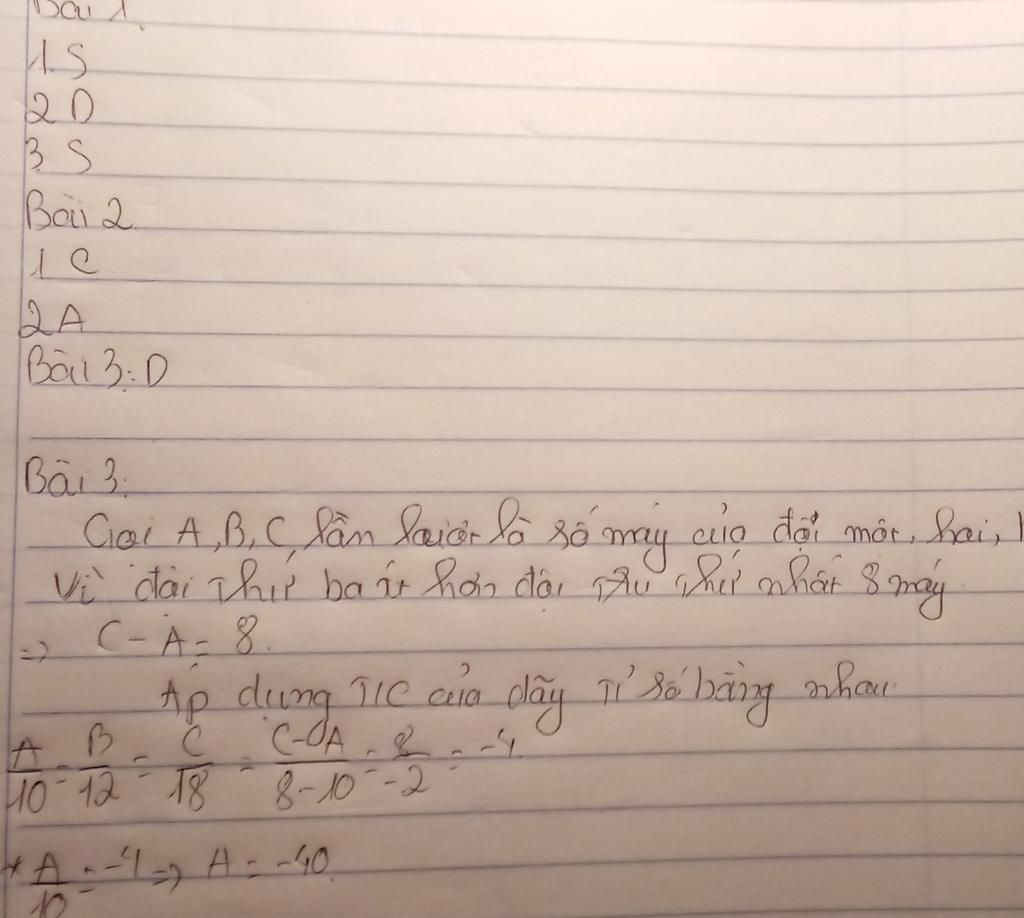 Bài 1.
1 S
2 D
3 S
Bài 2.
1 C
2 A
Bài 3: D
Bài 3:
Gọi A, B, C, lần lượt là số máy của đội một, hai,
Vì đội thứ ba ít hơn đội thứ nhất 8 máy
=> C - A = 8.
Áp dụng T/C của dãy tỉ số bằng nhau
A/10 = B/12 = C/18 = C-A/8-10 = 8/-2 = -4
* A/10 = -4 => A = -40.